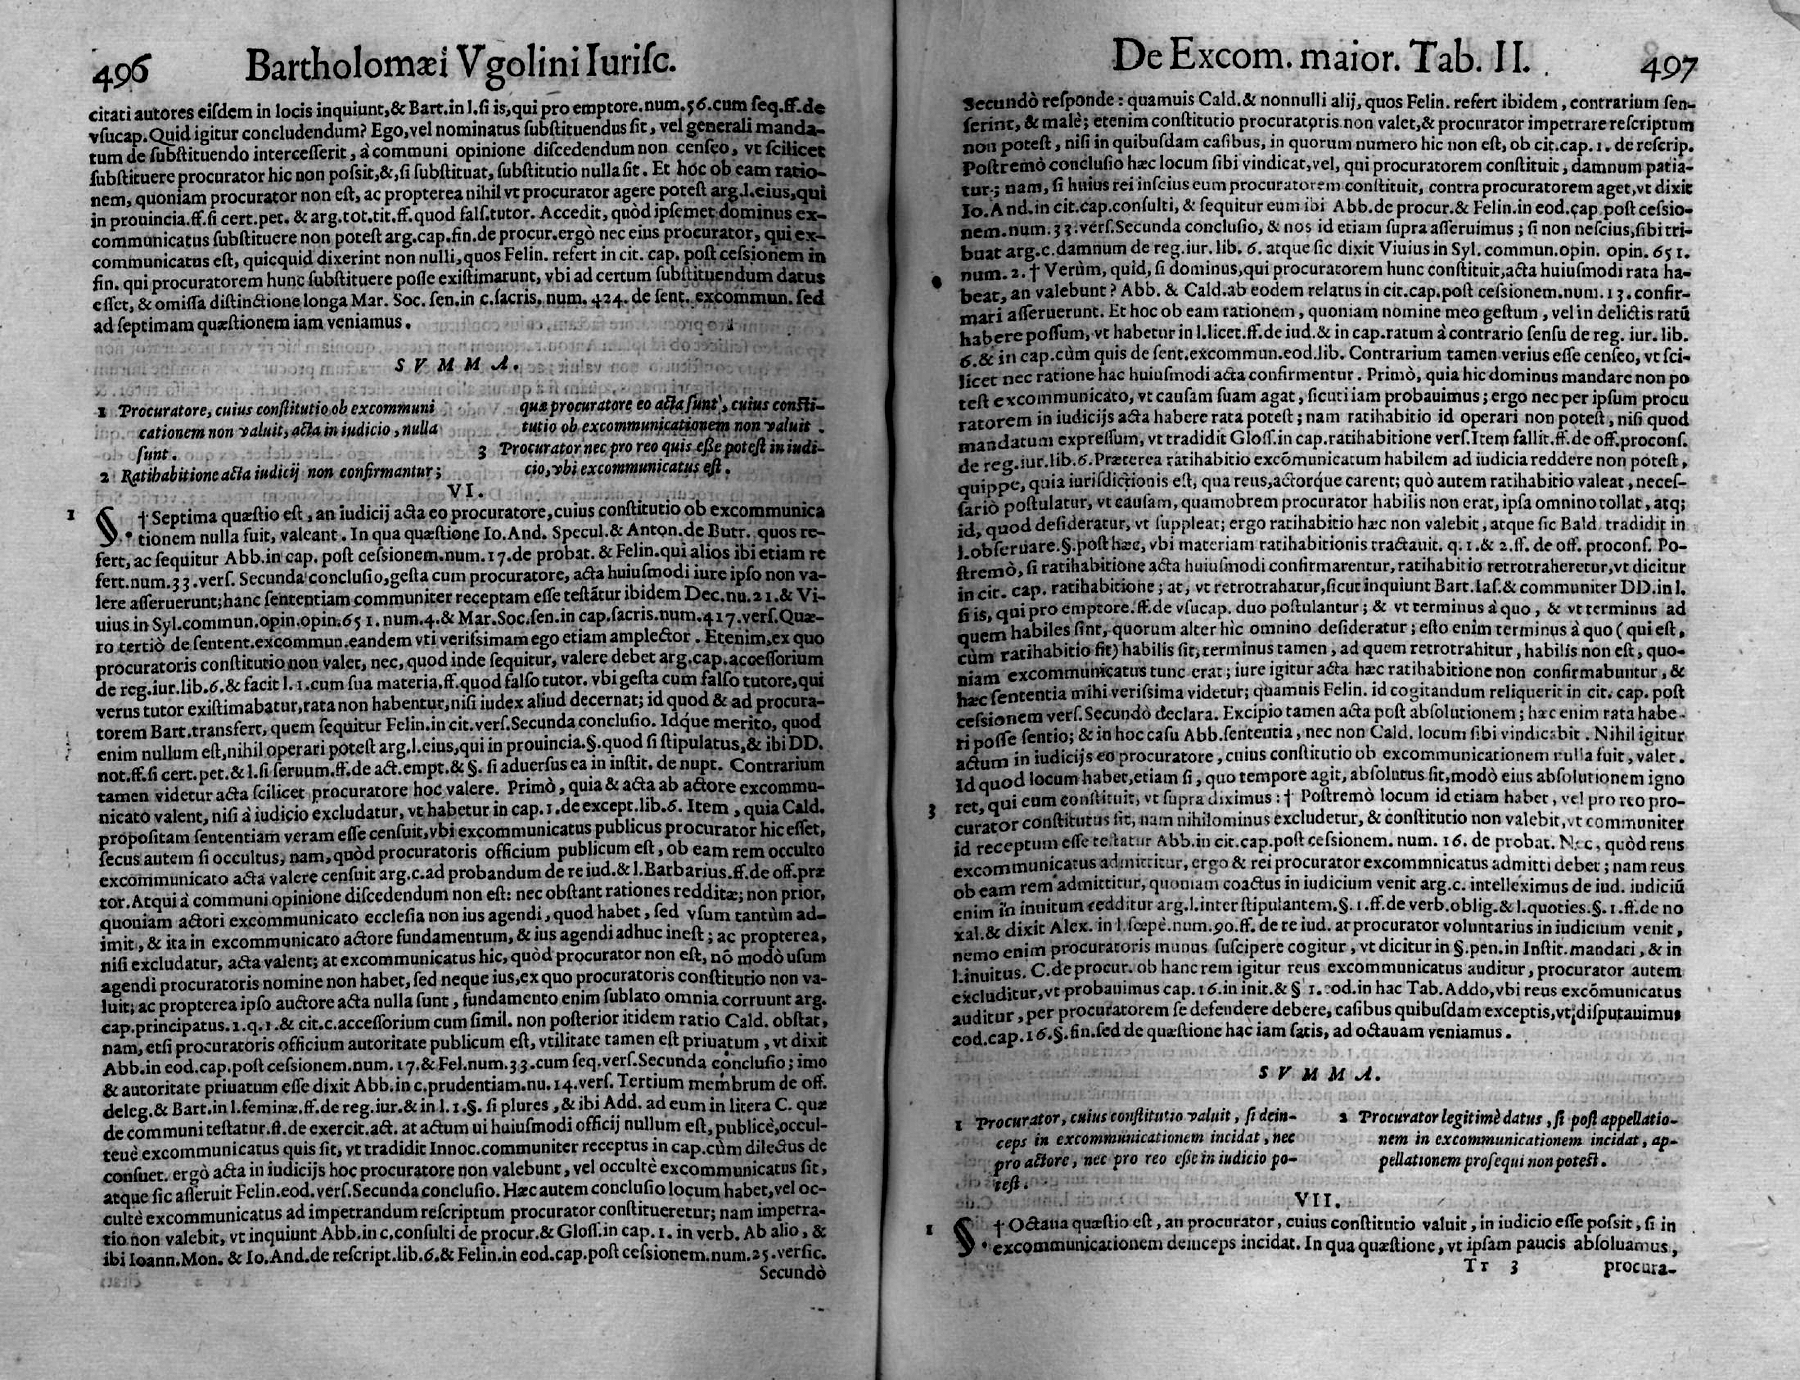 496 Bartholomæi Vgolini Iurisc.
citati autores eisdem in locis inquiunt,& Bart. in l. si is, qui pro emptore. num. 56. cum seq. ff. de
vsucap. Quid igitur concludendum? Ego, vel nominatus substituendus sit, vel generali manda-
tum de substituendo intercesserit, à communi opinione discedendum non censeo, vt scilicet
substituere procurator hic non possit, &, si substituat, substitutio nulla sit. Et hoc ob eam ratio-
nem, quoniam procurator non est, ac propterea nihil vt procurator agere potest arg. l. eius, qui
in prouincia. ff. si cert. pet. & arg. tot. tit. ff. quod fals. tutor. Accedit, quòd ipsemet dominus ex-
communicatus substituere non potest arg. cap. fin. de procur. ergò nec eius procurator, qui ex-
communicatus est, quicquid dixerint non nulli, quos Felin. refert in cit. cap. post cessionem in
fin. qui procuratorem hunc substituere posse existimarunt, vbi ad certum substituendum datus
esset, & omissa distinctione longa Mar. Soc. sen. in c. sacris, num. 424. de sent. excommun. sed
ad septimam quæstionem iam veniamus.
SVMMA.
1 Procuratore, cuius constitutio ob excommuni
cationem non valuit, acta in iudicio, nulla
sunt.
2 Ratihabitione acta iudicij non confirmantur;
quæ procuratore eo acta sunt, cuius consti-
tutio ob excommunicationem non valuit.
3 Procurator nec pro reo quis eße potest in iudi-
cio, vbi excommunicatus est.
VI.
1 §. † Septima quæstio est, an iudicij acta eo procuratore, cuius constitutio ob excommunica
tionem nulla fuit, valeant. In qua quæstione Io. And. Specul. & Anton. de Butr. quos re-
fert, ac sequitur Abb. in cap. post cessionem. num. 17. de probat. & Felin. qui alios ibi etiam re
fert. num. 33. vers. Secunda conclusio, gesta cum procuratore, acta huiusmodi iure ipso non va-
lere asseruerunt; hanc sententiam communiter receptam esse testãtur ibidem Dec. nu. 21. & Vi-
uius in Syl. commun. opin. opin. 651. num. 4. & Mar. Soc. sen. in cap. sacris. num. 417. vers. Quæ-
ro tertiò de sentent. excommun. eandem vti verissimam ego etiam amplector. Etenim, ex quo
procuratoris constitutio non valet, nec, quod inde sequitur, valere debet arg. cap. accessorium
de reg. iur. lib. 6. & facit l. 1. cum sua materia, ff. quod falso tutor. vbi gesta cum falso tutore, qui
verus tutor existimabatur, rata non habentur, nisi iudex aliud decernat; id quod & ad procura-
torem Bart. transfert, quem sequitur Felin. in cit. vers. Secunda conclusio. Idque merito, quod
enim nullum est, nihil operari potest arg. l. eius, qui in prouincia. §. quod si stipulatus, & ibi DD.
not. ff. si cert. pet. & l. si seruum. ff. de act. empt. & §. si aduersus ea in instit. de nupt. Contrarium
tamen videtur acta scilicet procuratore hoc valere. Primò, quia & acta ab actore excommu-
nicato valent, nisi à iudicio excludatur, vt habetur in cap. 1. de except. lib. 6. Item, quia Cald.
propositam sententiam veram esse censuit, vbi excommunicatus publicus procurator hic esset,
secus autem si occultus, nam, quòd procuratoris officium publicum est, ob eam rem occulto
excommunicato acta valere censuit arg. c. ad probandum de re iud. & l. Barbarius. ff. de off. præ
tor. Atqui à communi opinione discedendum non est: nec obstant rationes redditæ; non prior,
quoniam actori excommunicato ecclesia non ius agendi, quod habet, sed vsum tantùm ad-
imit, & ita in excommunicato actore fundamentum, & ius agendi adhuc inest; ac propterea,
nisi excludatur, acta valent; at excommunicatus hic, quòd procurator non est, nõ modò usum
agendi procuratoris nomine non habet, sed neque ius, ex quo procuratoris constitutio non va-
luit; ac propterea ipso auctore acta nulla sunt, fundamento enim sublato omnia corruunt arg.
cap. principatus. 1. q. 1. & cit. c. accessorium cum simil. non posterior itidem ratio Cald. obstat,
nam, etsi procuratoris officium autoritate publicum est, vtilitate tamen est priuatum, vt dixit
Abb. in eod. cap. post cessionem. num. 17. & Fel. num. 33. cum seq. vers. Secunda conclusio; imo
& autoritate priuatum esse dixit Abb. in c. prudentiam. nu. 14. vers. Tertium membrum de off.
deleg. & Bart. in l. feminæ. ff. de reg. iur. & in l. 1. §. si plures, & ibi Add. ad eum in litera C. quæ
de communi testatur. ff. de exercit. act. at actum ui huiusmodi officij nullum est, publicè, occul-
teuè excommunicatus quis sit, vt tradidit Innoc. communiter receptus in cap. cùm dilectus de
consuet. ergò acta in iudicijs hoc procuratore non valebunt, vel occultè excommunicatus sit,
atque sic asseruit Felin. eod. vers. Secunda conclusio. Hæc autem conclusio locum habet, vel oc-
cultè excommunicatus ad impetrandum rescriptum procurator constitueretur; nam imperra-
tio non valebit, vt inquiunt Abb. in c. consulti de procur. & Gloss. in cap. 1. in verb. Ab alio, &
ibi Ioann. Mon. & Io. And. de rescript. lib. 6. & Felin. in eod. cap. post cessionem. num. 25. versic.
Secundò
De Excom. maior. Tab. II. 497
Secundò responde: quamuis Cald. & nonnulli alij, quos Felin. refert ibidem, contrarium sen-
serint, & malè; etenim constitutio procuratoris non valet, & procurator impetrare rescriptum
non potest, nisi in quibusdam casibus, in quorum numero hic non est, ob cit. cap. 1. de rescrip.
Postremò conclusio hæc locum sibi vindicat, vel, qui procuratorem constituit, damnum patia-
tur; nam, si huius rei inscius eum procuratorem constituit, contra procuratorem aget, vt dixit
Io. And. in cit. cap. consulti, & sequitur eum ibi Abb. de procur. & Felin. in eod. cap. post cessio-
nem. num. 33. vers. Secunda conclusio, & nos id etiam supra asseruimus; si non nescius, sibi tri-
buat arg. c. damnum de reg. iur. lib. 6. atque sic dixit Viuius in Syl. commun. opin. opin. 651.
num. 2. † Verùm, quid, si dominus, qui procuratorem hunc constituit, acta huiusmodi rata ha-
beat, an valebunt? Abb. & Cald. ab eodem relatus in cit. cap. post cessionem. num. 13. confir-
mari asseruerunt. Et hoc ob eam rationem, quoniam nomine meo gestum, vel in delictis ratũ
habere possum, vt habetur in l. licet. ff. de iud. & in cap. ratum à contrario sensu de reg. iur. lib.
6. & in cap. cùm quis de sent. excommun. eod. lib. Contrarium tamen verius esse censeo, vt sci-
licet nec ratione hac huiusmodi acta confirmentur. Primò, quia hic dominus mandare non po
test excommunicato, vt causam suam agat, sicuti iam probauimus; ergo nec per ipsum procu
ratorem in iudicijs acta habere rata potest; nam ratihabitio id operari non potest, nisi quod
mandatum expressum, vt tradidit Gloss. in cap. ratihabitione vers. Item fallit. ff. de off. procons.
de reg. iur. lib. 6. Præterea ratihabitio excõmunicatum habilem ad iudicia reddere non potest,
quippe, quia iurisdictionis est, qua reus, actorque carent; quò autem ratihabitio valeat, neces-
sariò postulatur, vt causam, quamobrem procurator habilis non erat, ipsa omnino tollat, atq;
id, quod desideratur, vt suppleat; ergo ratihabitio hæc non valebit, atque sic Bald. tradidit in
l. obseruare. §. post hæc, vbi materiam ratihabitionis tractauit. q. 1. & 2. ff. de off. procons. Po-
stremò, si ratihabitione acta huiusmodi confirmarentur, ratihabitio retrotraheretur, vt dicitur
in cit. cap. ratihabitione; at, vt retrotrahatur, sicut inquiunt Bart. Ias. & communiter DD. in l.
si is, qui pro emptore. ff. de vsucap. duo postulantur; & vt terminus à quo, & vt terminus ad
quem habiles sint, quorum alter hîc omnino desideratur; esto enim terminus à quo (qui est,
cùm ratihabitio fit) habilis sit, terminus tamen, ad quem retrotrahitur, habilis non est, quo-
niam excommunicatus tunc erat; iure igitur acta hæc ratihabitione non confirmabuntur, &
hæc sententia mihi verissima videtur; quamuis Felin. id cogitandum reliquerit in cit. cap. post
cessionem vers. Secundò declara. Excipio tamen acta post absolutionem; hæc enim rata habe-
ri posse sentio; & in hoc casu Abb. sententia, nec non Cald. locum sibi vindicabit. Nihil igitur
actum in iudicijs eo procuratore, cuius constitutio ob excommunicationem nulla fuit, valet.
Id quod locum habet, etiam si, quo tempore agit, absolutus sit, modò eius absolutionem igno
3 ret, qui eum constituit, vt supra diximus: † Postremò locum id etiam habet, vel pro reo pro-
curator constitutus sit, nam nihilominus excludetur, & constitutio non valebit, vt communiter
id receptum esse testatur Abb. in cit. cap. post cessionem. num. 16. de probat. Nec, quòd reus
excommunicatus admittitur, ergo & rei procurator excommnicatus admitti debet; nam reus
ob eam rem admittitur, quoniam coactus in iudicium venit arg. c. intelleximus de iud. iudiciũ
enim in inuitum redditur arg. l. inter stipulantem. §. 1. ff. de verb. oblig. & l. quoties. §. 1. ff. de no
xal. & dixit Alex. in l. sœpè. num. 90. ff. de re iud. at procurator voluntarius in iudicium venit,
nemo enim procuratoris munus suscipere cogitur, vt dicitur in §. pen. in Instit. mandati, & in
l. inuitus. C. de procur. ob hanc rem igitur reus excommunicatus auditur, procurator autem
excluditur, vt probauimus cap. 16. in init. & § 1. eod. in hac Tab. Addo, vbi reus excõmunicatus
auditur, per procuratorem se defendere debere, casibus quibusdam exceptis, vt disputauimus
eod. cap. 16. §. fin. sed de quæstione hac iam satis, ad octauam veniamus.
SVMMA.
1 Procurator, cuius constitutio valuit, si dein-
ceps in excommunicationem incidat, nec
pro actore, nec pro reo eße in iudicio po-
test.
2 Procurator legitimè datus, si post appellatio-
nem in excommunicationem incidat, ap-
pellationem prosequi non potest.
VII.
1 §. † Octaua quæstio est, an procurator, cuius constitutio valuit, in iudicio esse possit, si in
excommunicationem deinceps incidat. In qua quæstione, vt ipsam paucis absoluamus,
Tt 3 procura-